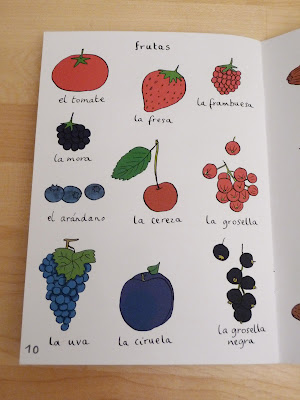 frutas
el tomate
la fresa
la frambuesa
la mora
el arándano
la cereza
la grosella
la uva
la ciruela
la grosella
negra
10